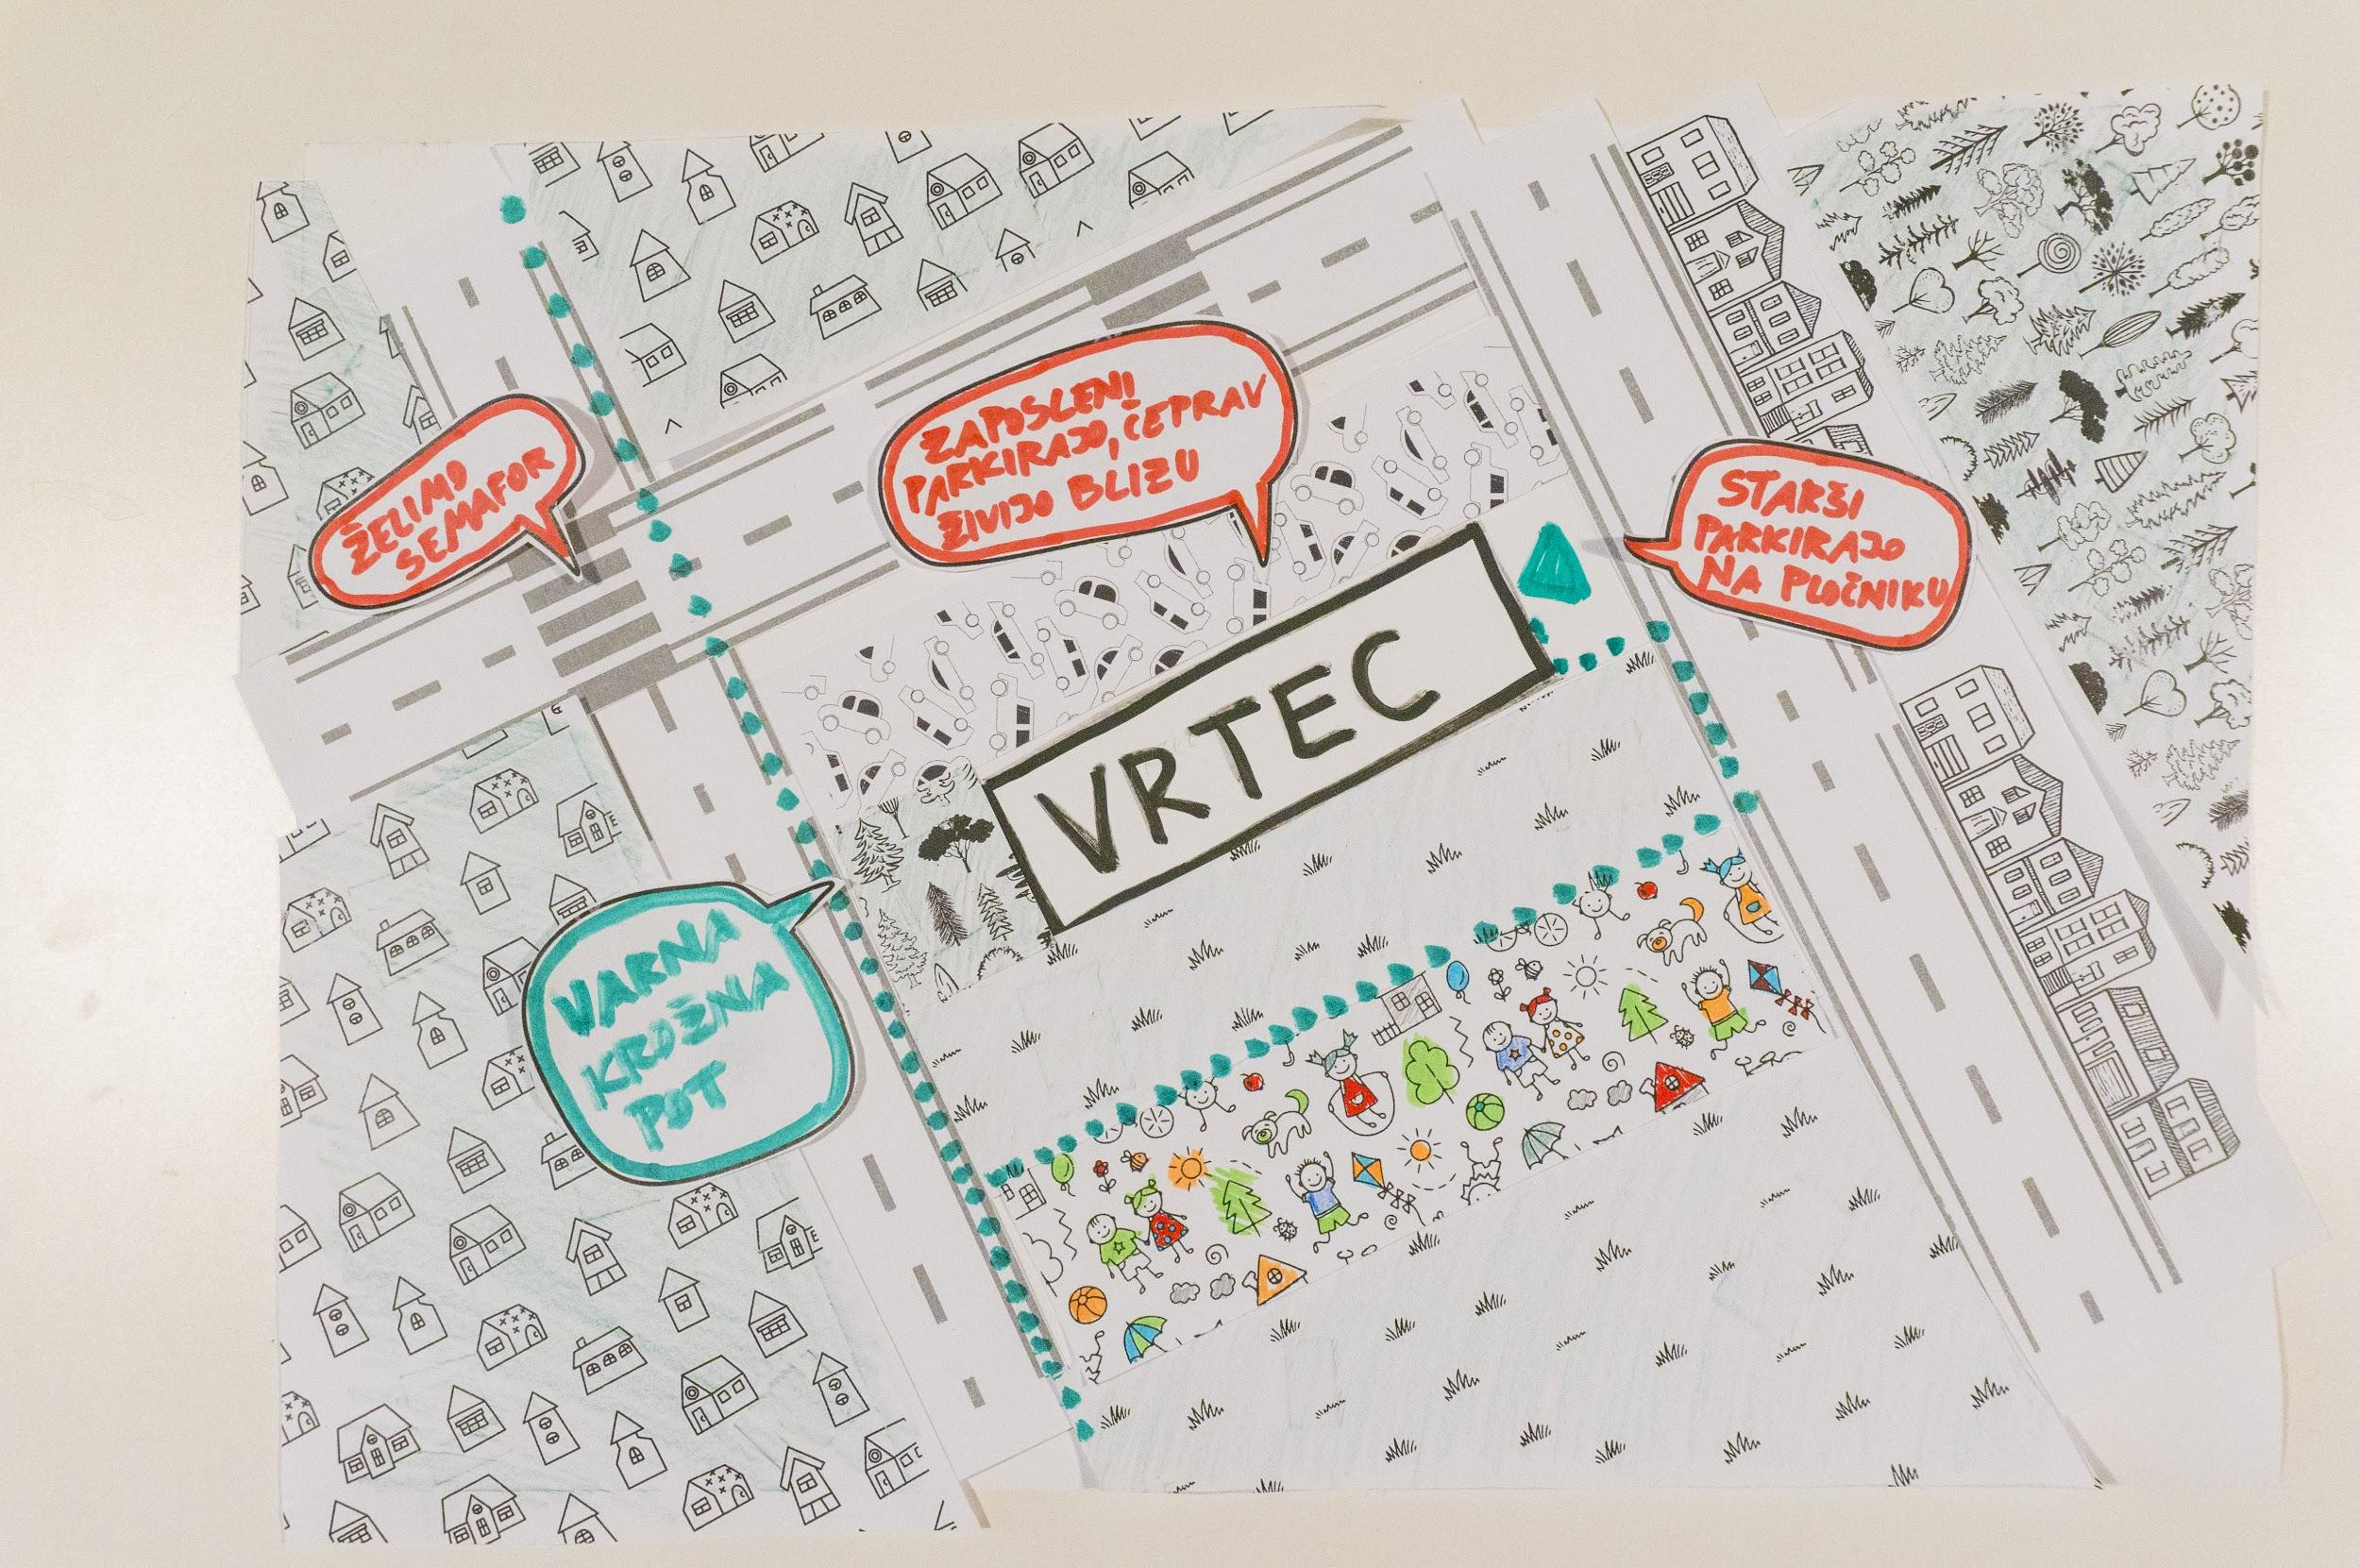 ŽELIMO
SEMAFOR
ZAPOSLENI
PARKIRAJO, ČEPRAV
ŽIVIJO BLIZU
STARŠI
PARKIRAJO
NA PLOČNIKU
VRTEC
VARNA
KROŽNA
POT